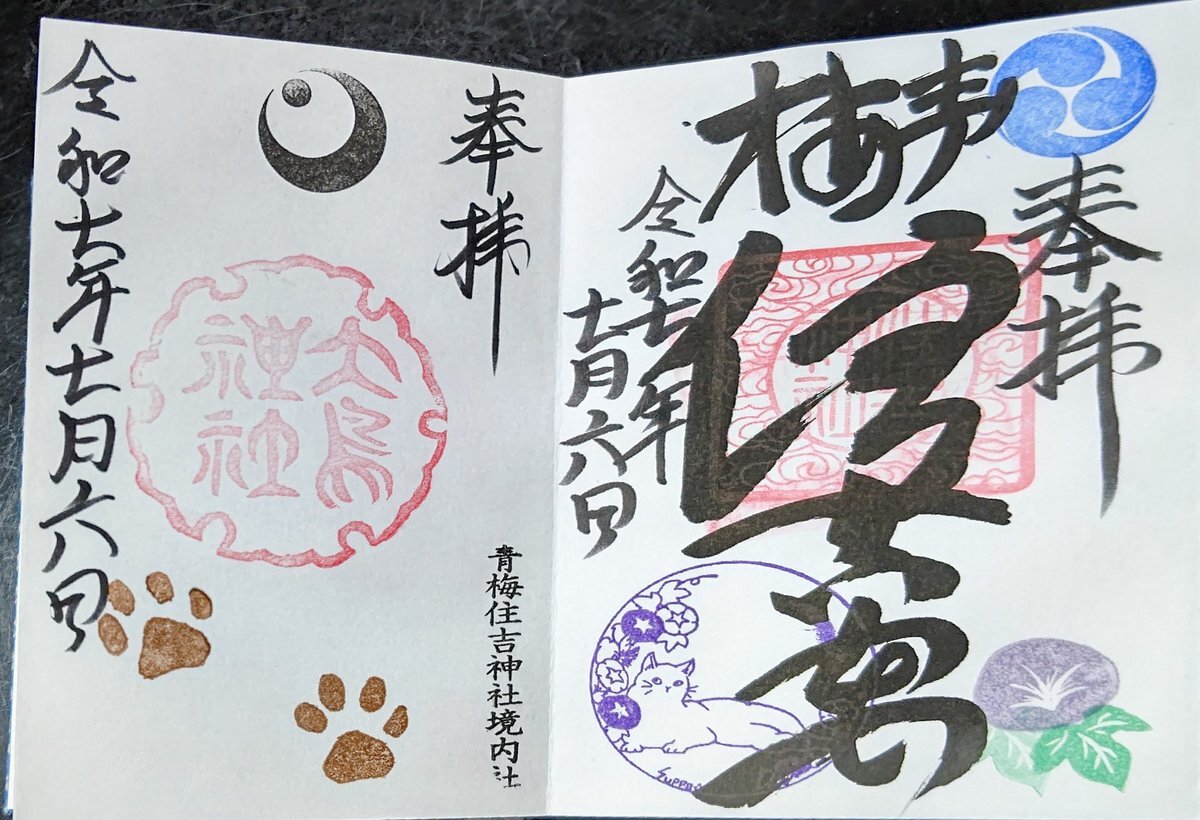 奉拝
青梅
住吉
令和七年
七月六日
奉拝
青梅住吉神社境内社
大鳥
神社
令和七年七月六日